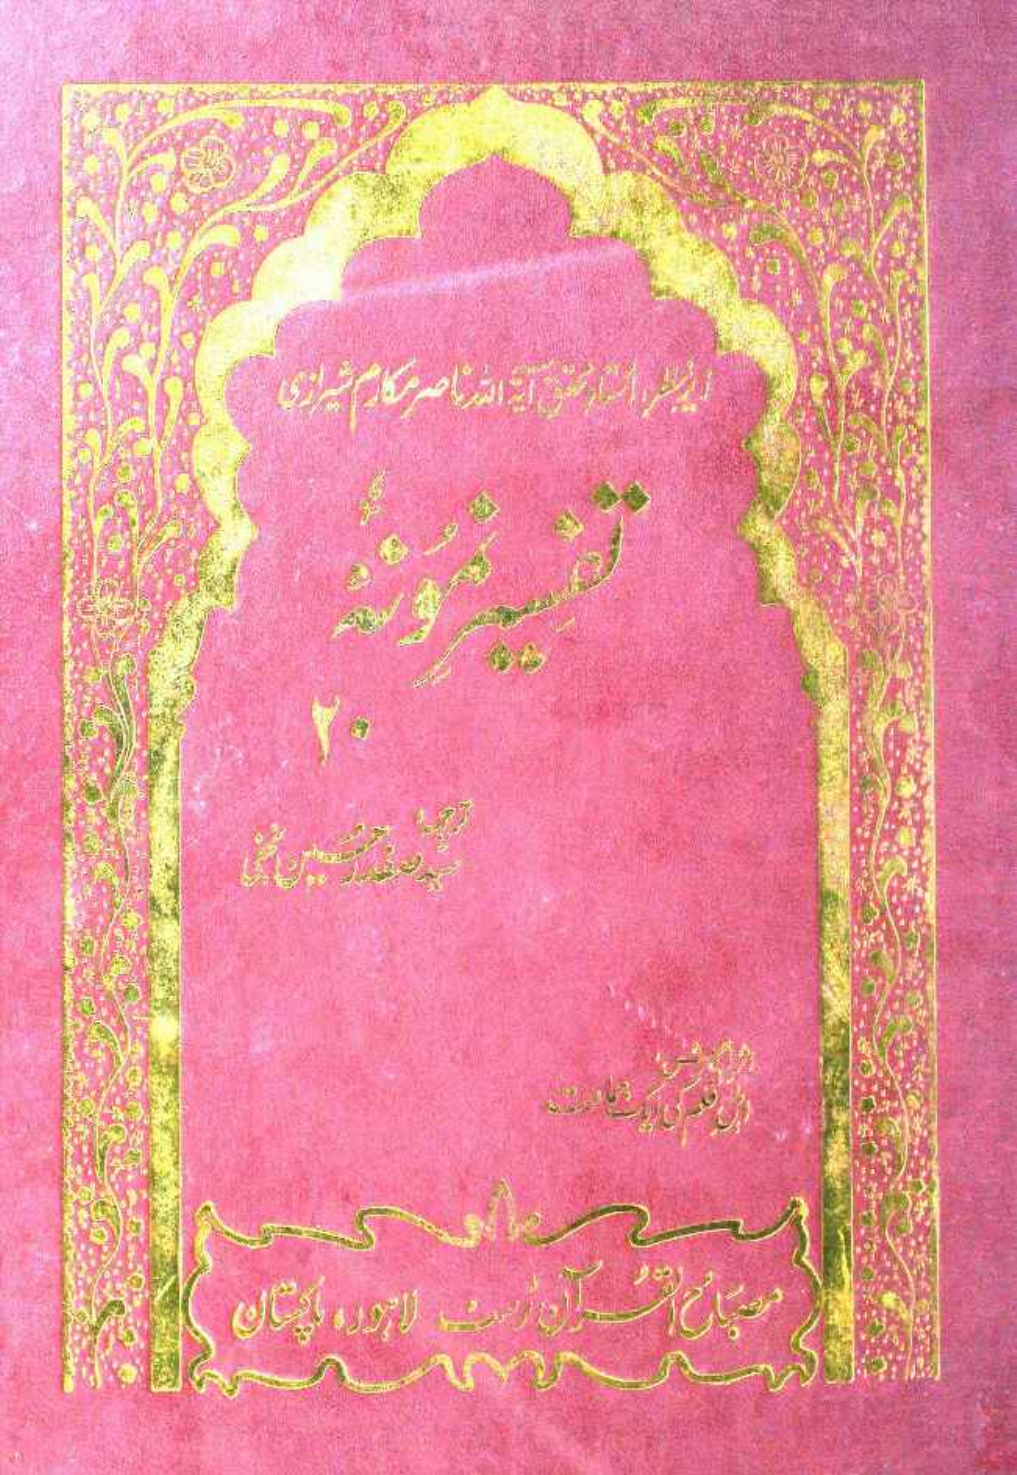 زیرنظر استاد محقق آیۃ اللہ ناصر مکارم شیرازی
تفسیر نمونہ
۲۰
ترجمہ
سید صفدر حسین نجفی
اہل قلم کی ایک جماعت
مصباح القرآن ٹرسٹ لاہور، پاکستان